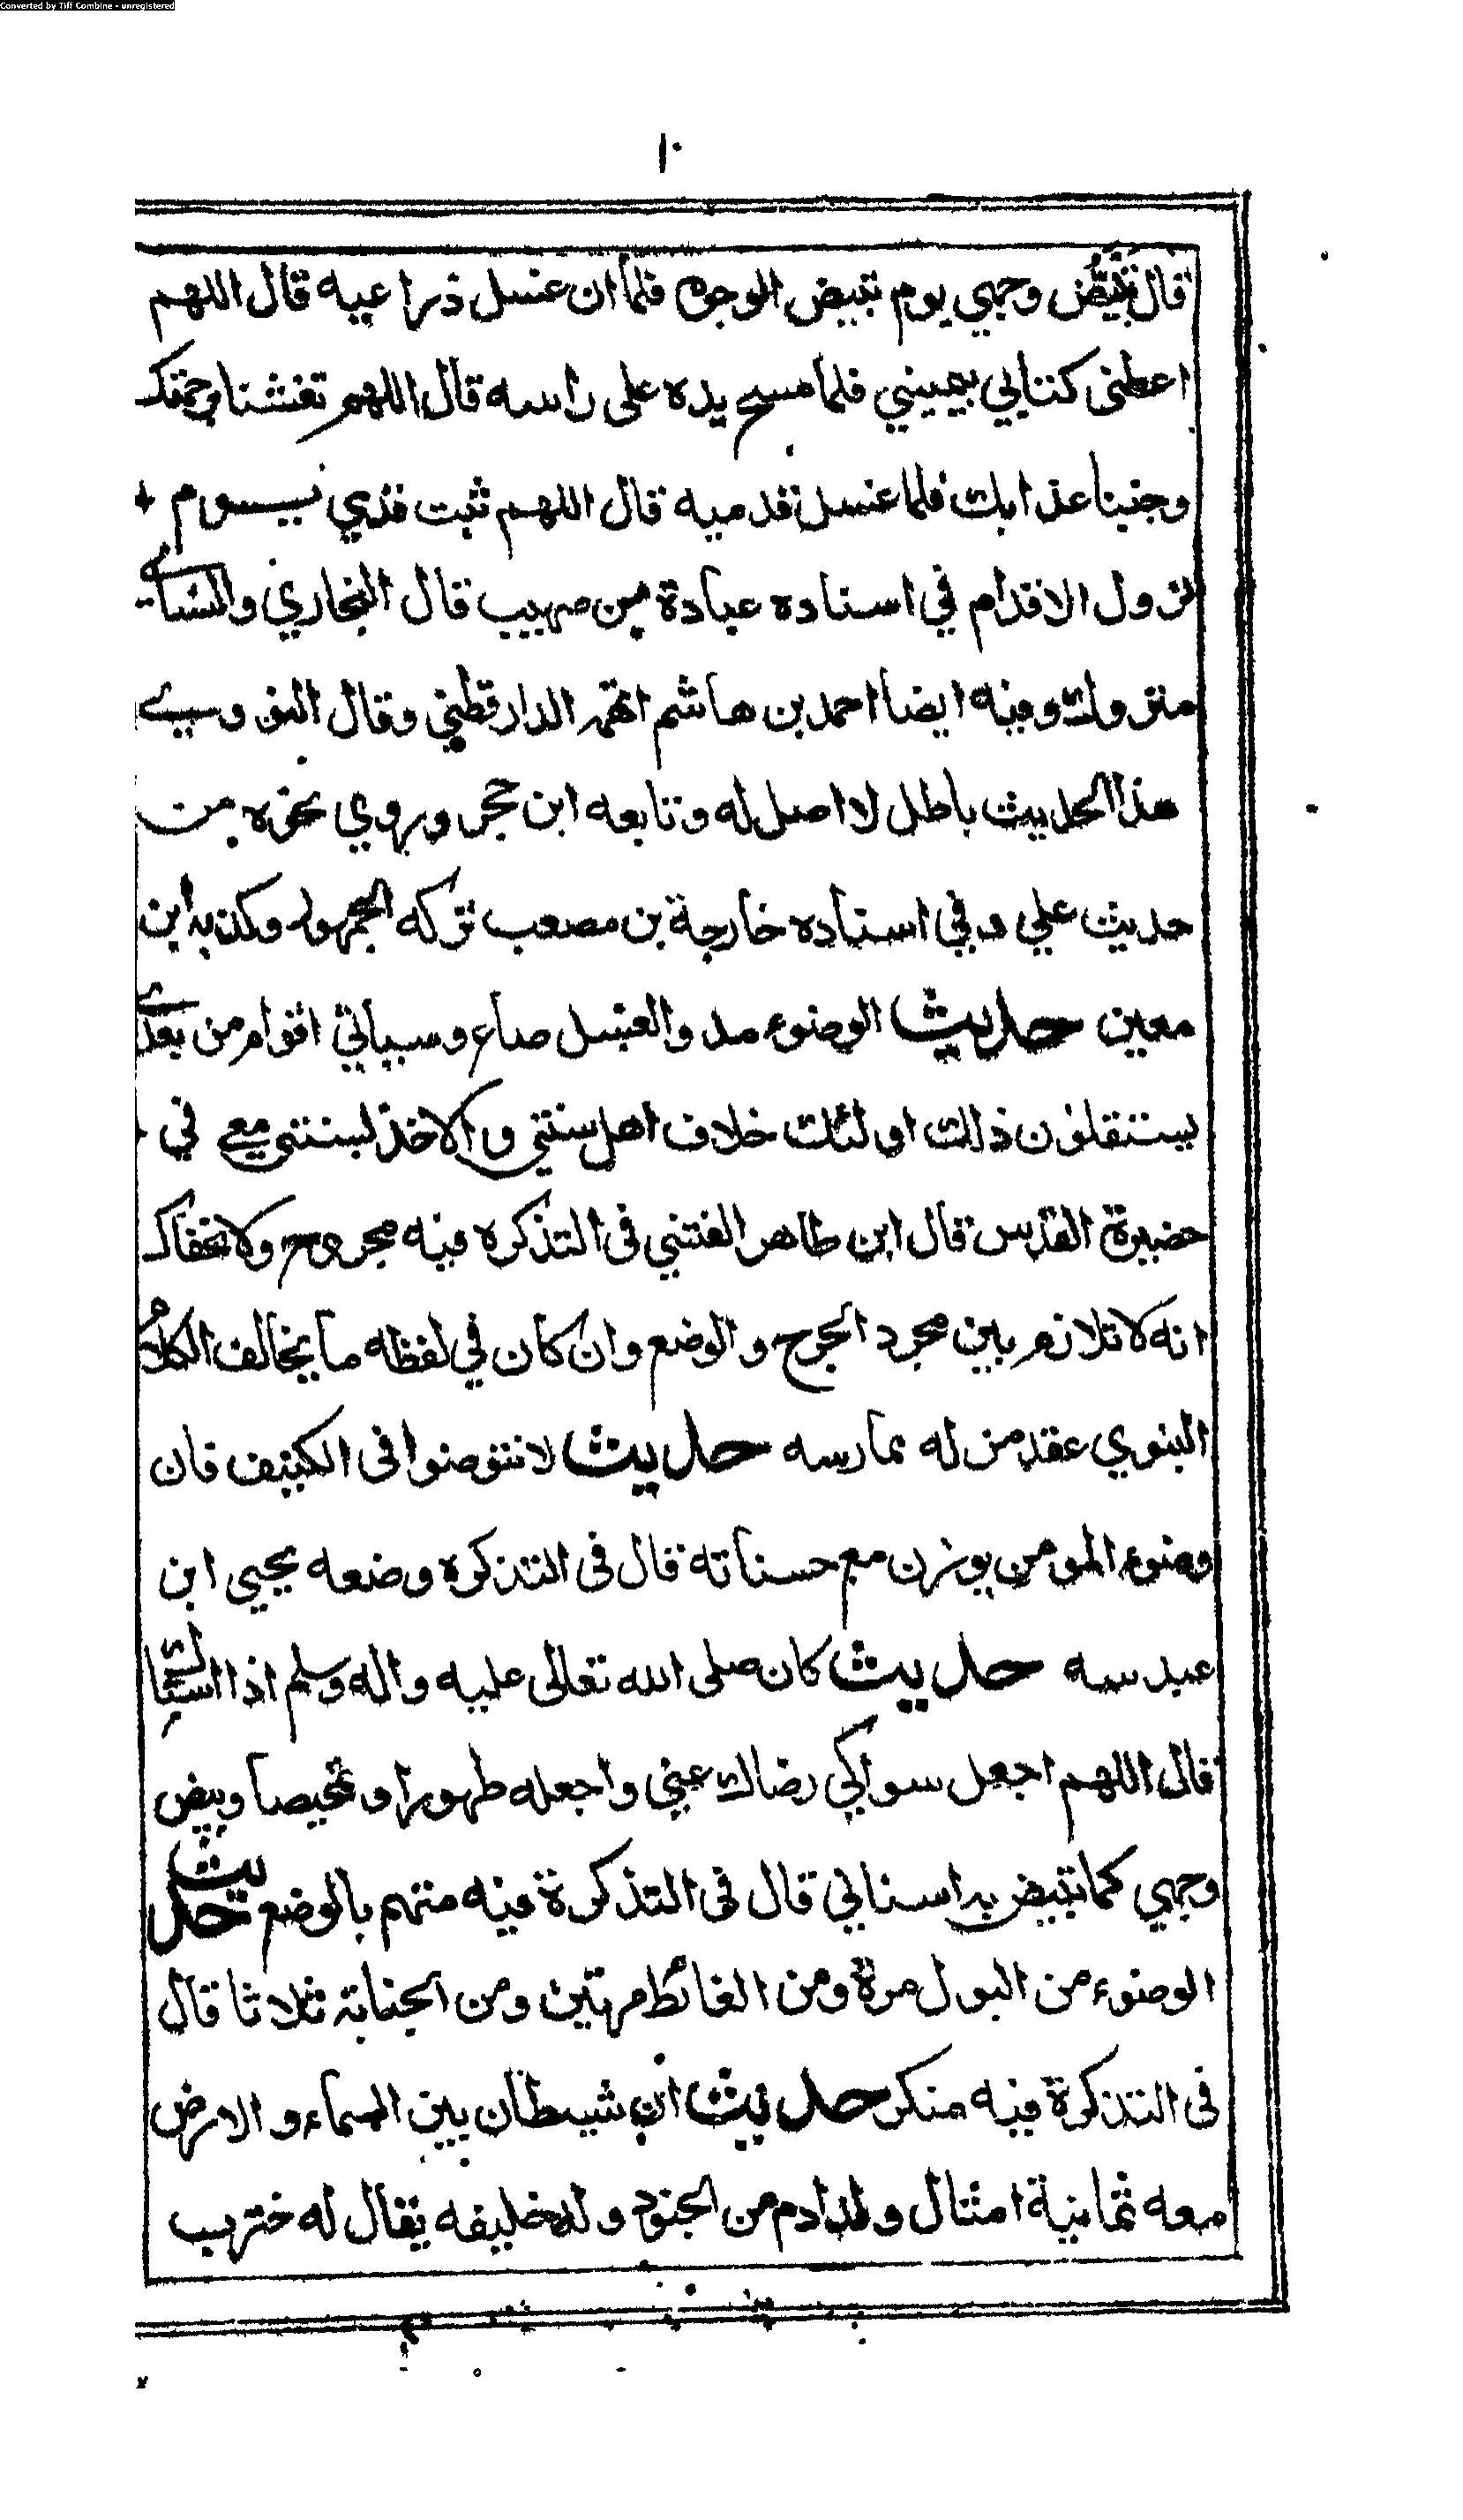 Converted by Tiff Combine - unregistered
١٠
قال بيض وجهي يوم تبيض الوجوه فلما ان غسل ذراعيه قال اللهم
اعطني كتابي بيميني فلما مسح يده على راسه قال اللهم تغشنا رحمتك
وجنبنا عذابك فلما غسل قدميه قال اللهم ثبت قدمي يوم
تزول الاقدام في اسناده عبادة بن صهيب قال البخاري والنسائي
متروك وفيه ايضا احمد بن هاشم اتهمه الدارقطني وقال النووي
هذا الحديث باطل لا اصل له وتابعه ابن حجر وروي نحوه من
حديث علي وفي اسناده خارجة بن مصعب تركه الجمهور وكذبه ابن
معين حديث الوضوء مد والغسل صاع وسياتي اقوام من بعدي
يستقلون ذلك اولئك خلاف اهل سنتي والاخذ بسنتي معي في
حضيرة القدس قال ابن طاهر الفتني في التذكرة فيه مجروح ولا يخفاك
انه لا تلازم بين مجرد الجرح والوضع وان كان في لفظه ما يخالف الكلام
النبوي عند من له ممارسه حديث لا تتوضوا في الكنيف فان
وضوء المومن يوزن مع حسناته قال في التذكرة وضعه يحيى ابن
عبدسه حديث كان صلى الله تعالى عليه واله وسلم اذا استاك
قال اللهم اجعل سواكي رضاك عني واجعله طهورا وتمحيصا وبيض
وجهي كما تبيض به اسناني قال في التذكرة فيه متهم بالوضع حديث
الوضوء من البول مرة ومن الغائط مرتين ومن الجنابة ثلاثا قال
في التذكرة فيه منكر حديث ان شيطان بين السماء والارض
معه ثمانية امثال ولد ادم من الجنود وله خليفه يقال له خنزب